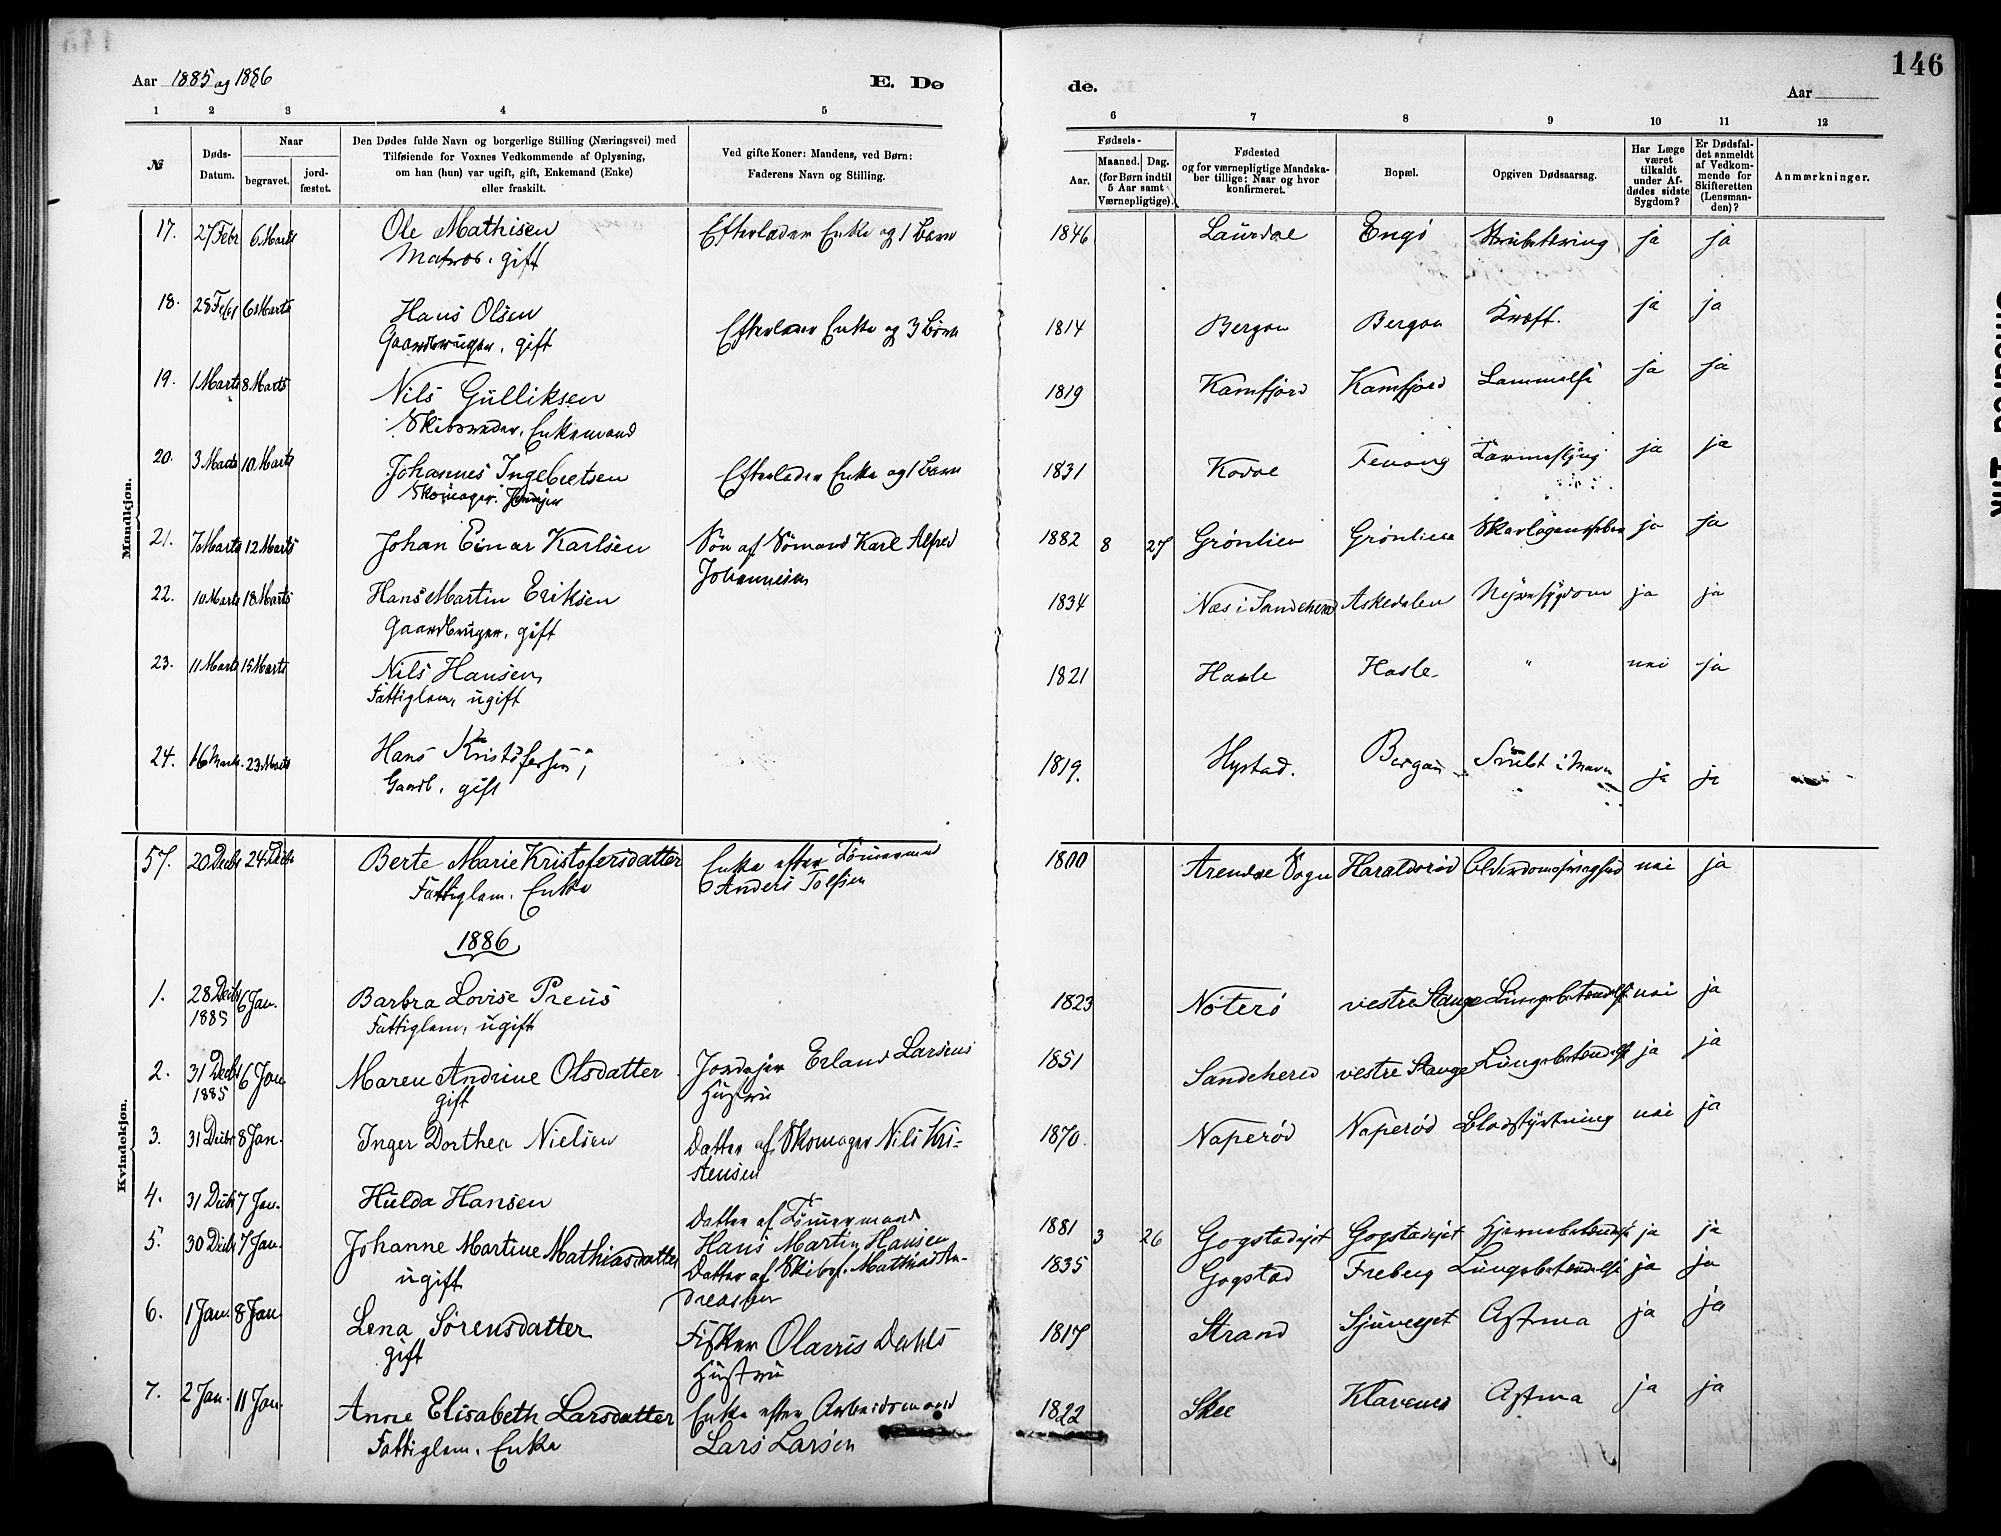 146
Aar 1885 og 1886 E. Døde. Aar
1 2 3 4 5 6 7 8 9 10 11 12
№ Døds-Datum. Naar begravet. jordfæstet. Den Dødes fulde Navn og borgerlige Stilling (Næringsvei) med Tilføiende for Voxnes Vedkommende af Oplysning, om han (hun) var ugift, gift, Enkemand (Enke) eller fraskilt. Ved gifte Koner: Mandens, ved Børn: Faderens Navn og Stilling. Fødsels- Aar. Maaned. Dag. (for Børn indtil 5 Aar samt Værnepligtige). Fødested og for værnepligtige Mandskaber tillige: Naar og hvor konfirmeret. Bopæl. Opgiven Dødsaarsag. Har Læge været tilkaldt under Afdødes sidste Sygdom? Er Dødsfaldet anmeldt af Vedkommende for Skifteretten (Lensmanden)? Anmærkninger.
Mandkjøn.
17. 27 Febr 6 Marts Ole Mathisen Efterlader Enke og 1 Barn 1846 Laurdal Engø Strubetæring ja ja
Matros. gift
18. 28 Febr 6 Marts Hans Olsen Efterlader Enke og 3 Børn 1814 Bergan Bergan Kræft. ja ja
Gaardbruger. gift
19. 1 Marts 8 Marts Nils Gulliksen 1819 Kamfjord Kamfjord Lammelse ja ja
Skibsreder. Enkemand
20. 3 Marts 10 Marts Johannes Ingebretsen Efterlader Enke og 1 Barn 1831 Kodal ja ja
Skomager.
21. 7 Marts 12 Marts Johan Einar Karlsen Søn af Sømand Karl Alfred 1882 8 27 Grønlien Grønlien Skarlagensfeber ja ja
Johannesen
22. 10 Marts 18 Marts Hans Martin Eriksen 1834 Næs i Sandeherd Askedalen Nyresygdom ja ja
Gaardbruger. gift
23. 11 Marts 15 Marts Nils Hansen, 1821 Hasle Hasle. " nei ja
Fattiglem, ugift
24. 16 Marts. 23 Marts Hans Kristofersen, 1819. Hystad. Bergan i Maven ja ja
Gaardb. gift
Kvindekjøn.
57. 20 Decbr 24 Decbr Berte Marie Kristofersdatter Enke efter Tømmermand 1800 Arendal Sogn Haraldsrød Alderdomssvaghed nei ja
Fattiglem. Enke Anders Tolfsen
1886
1. 28 Decbr 6 Jan. Barbra Lovise Preus 1823 Nøterø vestre Stange Lungebetændelse nei ja
1885 Fattiglem, ugift
2. 31 Decbr 6 Jan Maren Andrine Olsdatter Jordejer Erland Larsens 1851 Sandeherred vestre Stange Lungebetændelse ja ja
1885 gift Hustru
3. 31 Decbr 8 Jan. Inger Dorthea Nielsen Datter af Skomager Nils Kri- 1870. Naperød Naperød Blodstyrtning nei ja
stensen
4. 31 Decbr 7 Jan. Hulda Hansen Datter af Tømmermand 1881 3 26 Gogstadejet Gogstadejet Hjernebetændelse ja ja
Hans Martin Hansen
5. 30 Decbr 7 Jan. Johanne Martine Mathiasdatter Datter af Skibsf. Mathias An- 1835 Gogstad Freberg Lungebetændelse ja ja
ugift dreassen
6. 1 Jan. 8 Jan Lena Sørensdatter Fisker Olavus Dahls 1817 Strand Sjuvejet Astma ja ja
gift Hustru
7. 2 Jan. 11 Jan. Anne Elisabeth Larsdatter Enke efter Arbeidsmand 1822 Skee Klavenes Astma ja ja
Fattiglem. Enke Lars Larsen